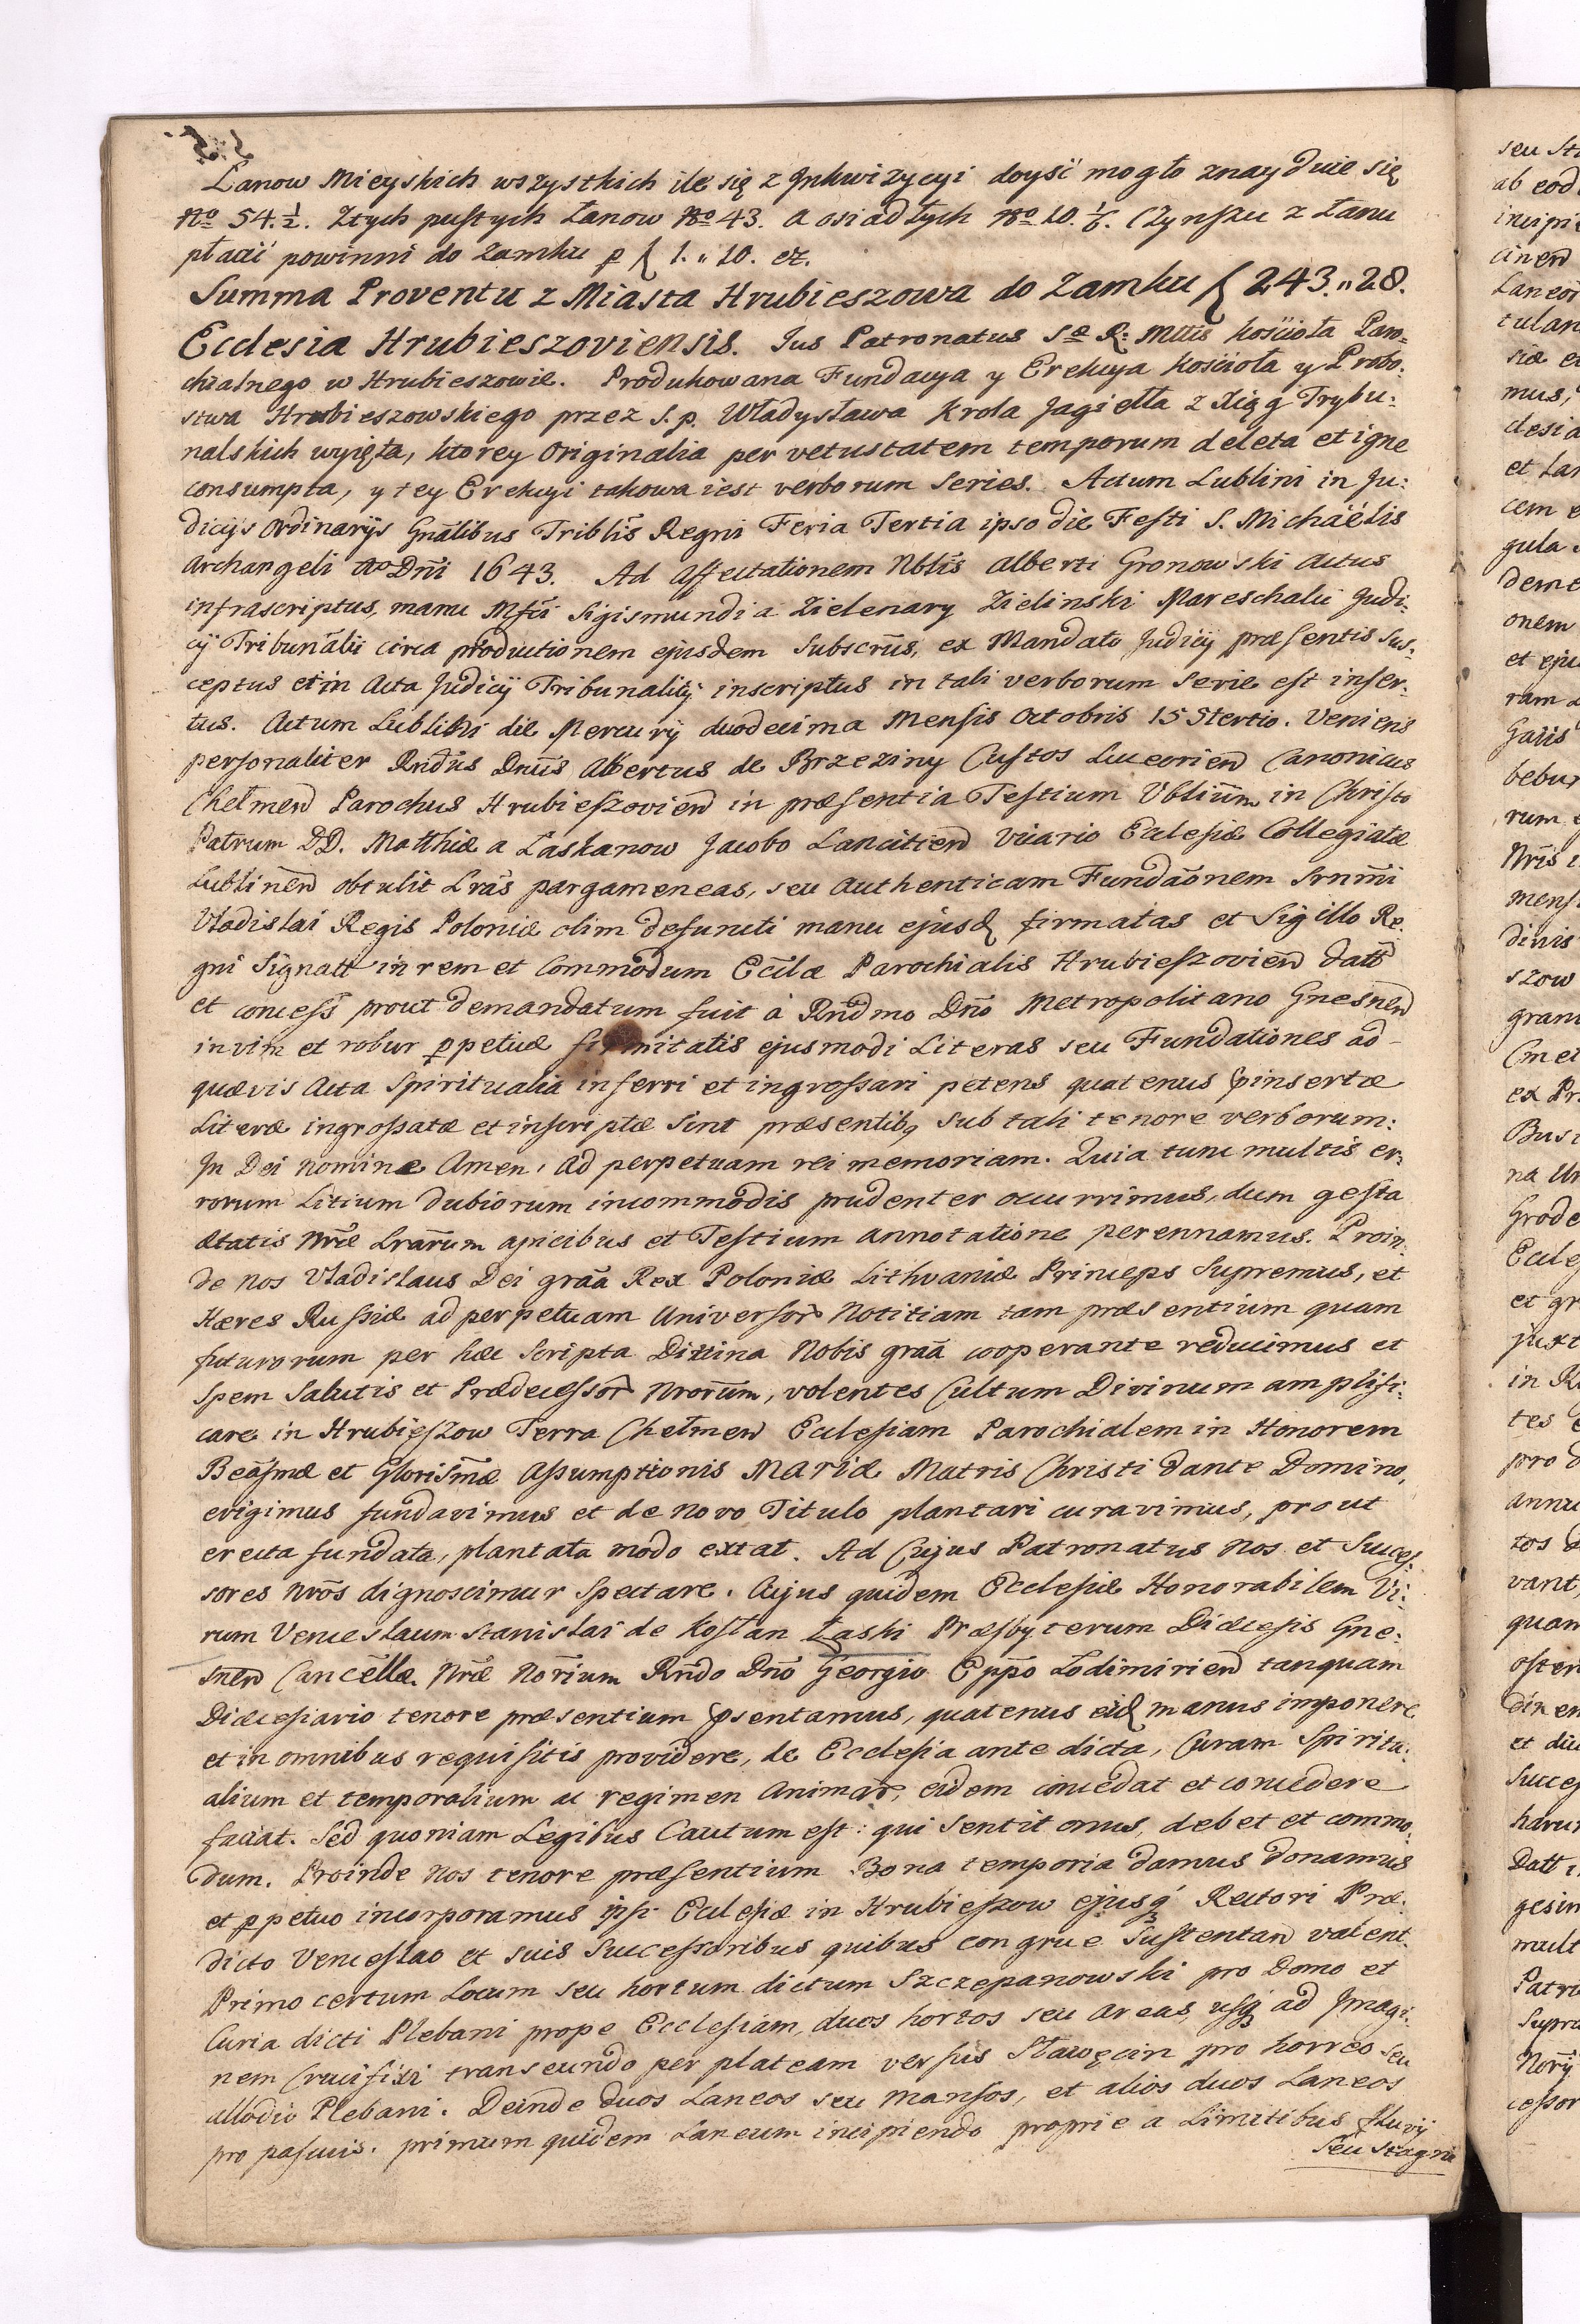 Łanow Mieyskich wszystkich ile się z Jnkwizycyi doysć mogło znayduie się
Nº 54.½. Ztych pustych Łanow Nº 43. a osiadłych Nº 10.⅙. Czynszu z Łanu
płacić powinni do Zamku ꝑ ƒ 1.〃10. ez.
Summa Proventu z Miasta Hrubieszowa do Zamku ƒ 243.〃28.
Ecclesia Hrubieszoviensis. Jus Patronatus Sæ R: Mttis kościoła Paro=
chialnego w Hrubieszowie. Produkowana Fundacya y Erekcya kościoła y Probo:
stwa Hrubieszowskiego przez S. p. Władysława Krola Jagiełła z Xiąg Trybu:
nalskich wyięta, ktorey Originalia per vetustatem temporum deleta et igne
consumpta, y tey Erekcyi takowa iest verborum Series. Actum Lublini in Ju:
dicijs Ordinarijs Gnãlibus Triblis̃ Regni Feria Tertia ipso die Festi S. Michaëlis
Archangeli Aº Dni 1643. Ad Affectationem Nblis̃ Alberti Gronowski Actus
infrascriptus, manu Mfci Sigismundi a Zielenary Zielinski Mareschalci Judi:
cij Tribunalis circa productionem ejusdem Subscrus̃, ex Mandato Judicij præsentis Sus:
ceptus et in Acta Judicij Tribunalitij inscriptus in tali verborum Serie est inser:
tus. Actum Lublini die Mercurij duodecima Mensis Octobris 155tertio. Veniens
personaliter Rndus̃ Dnus̃ Albertus de Brzeziny Custos Luceorien̄ Canonicus
Chełmen̄ Parochus Hrubieszovien̄ in præsentia Testium Vblium̃ in Christo
Patrum DD. Matthia a Laskanow Jacobo Lancitien̄ Vicario Ecclesiæ Collegiatæ
Lublinen̄ obtulit Lrãs pargameneas, seu Authenticam Fundãonem Srnm̃i
Vladislai Regis Poloniæ olim defuncti manu ejusd firmatas et Sigillo Re:
gni Signatt in rem et Commodum Eccl̃æ Parochialis Hrubieszovien̄ datt
et concess prout demandatum fuit à Rndmo Dno Metropolitano Gnesnen̄
in vim et robur ꝑpetuæ firmitatis ejusmodi Literas seu Fundationes ad
quævis Acta Spiritualia inserri et ingrossari petens quatenus ꝓinsertæ
Literæ ingrossatæ et inscriptæ Sint præsentibꝫ sub tali tenore verborum:
Jn Dei Nomine Amen, Ad perpetuam rei memoriam. Quia tunc multis er:
rorum Litium dubiorum incommodis prudenter occurrimus, dum gesta
ætatis Nrãe Lrarũm apicibus et Testium annotatione perennamus. Proin:
de Nos Vladislaus Dei grãa Rex Poloniæ Lithvaniæ Princeps Supremus, et
Hæres Russiæ ad perpetuam Universor̃ Notitiam tam præsentium quam
futurorum per hæc Scripta Divina Nobis grãa cooperante reducimus et
Spem Salutis et Prædecessor̃ Nrorum̃, volentes Cultum Divinum amplifi:
care in Hrubieszow Terra Chełmen̄ Ecclesiam Parochialem in Honorem
Beãsmæ et Glorisñmæ Assumptionis MARIÆ Matris Christi dante Domino,
erigimus fundavimus et de novo Titulo plantari curavimus, prout
erecta fundata, plantata modo extat. Ad Cujus Patronatus Nos et Succes:
sores Nros̃ dignoscimur Spectare. Cujus quidem Ecclesiæ Honorabilem Vi:
rum Venceslaum Stanislai de Kostan Łaski Præsbyterum Diæcesis Gne:
snen̄ Cancellæ Nrãe Norium̃ Rndo Dno Georgio Eppo Lodimirien̄ tanquam
Diæcesiario tenore præsentium ꝓsentamus, quatenus eid manus imponere
et in omnibus requisitis providere, de Ecclesia ante dicta, Curam Spiritu:
alium et temporalium ac regimen Animar̃, eidem concedat et concedere
faciat. Sed quoniam Legibus Cautum est: qui Sentit onus, debet et commo:
dum. Proinde Nos tenore præsentium Bona temporia damus donamus
et ꝑpetuo incorporamus ipsi Ecclesiæ in Hrubieszow ejusqꝫ Rectori Præ:
dicto Venceslao et suis Successoribus quibus congrue Sustentari valent.
Primo certum Locum seu hortum dictum Szczepanowski pro Domo et
Curia dicti Plebani prope Ecclesiam, duos hortos seu areas, usqꝫ ad Jmagi:
nem Crucifixi transeundo per plateam versus Sławęcin pro horreo seu
allodio Plebani. Deinde duos Laneos seu Mansos, et alios duos Laneos
pro pascuis. primum quidem Laneum incipiendo proprie a Limitibus Fluvij
Seu Stagni